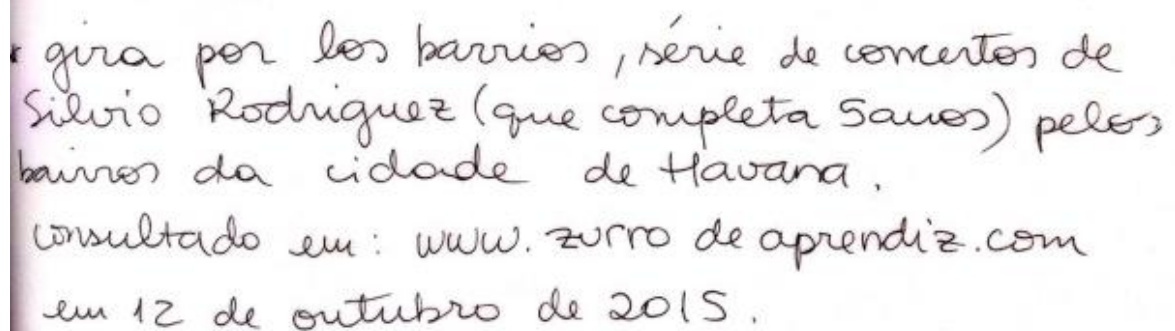 * gira por los barrios, série de concertos de
Silvio Rodriguez (que completa 5 anos) pelos
bairros da cidade de Havana.
consultado em: www.zurrodeaprendiz.com
em 12 de outubro de 2015.